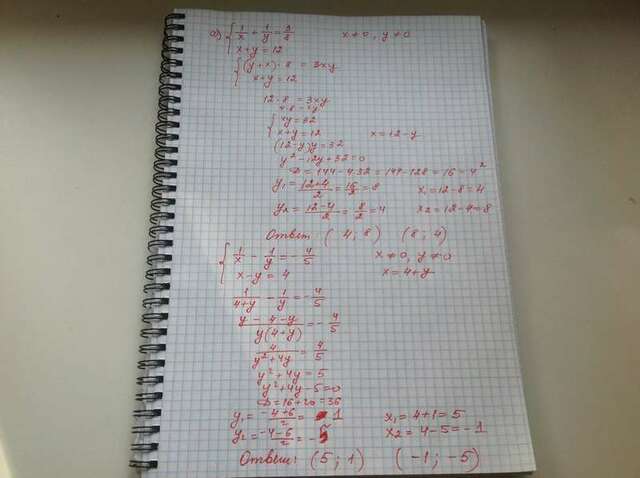 а) { 1/x + 1/y = 3/8 x≠0, y≠0
x+y=12
{ (y+x)·8 = 3xy
x+y=12
12·8 = 3xy
{ xy=32
x+y=12 x=12-y
(12-y)y=32
y²-12y+32=0
D=144-4·32=144-128=16=4²
y₁=(12+4)/2=16/2=8 x₁=12-8=4
y₂=(12-4)/2=8/2=4 x₂=12-4=8
Ответ: (4;8) (8;4)
{ 1/x - 1/y = -4/5 x≠0, y≠0
x-y=4 x=4+y
1/(4+y) - 1/y = -4/5
(y-4-y)/(y(4+y)) = -4/5
4/(y²+4y) = 4/5
y²+4y=5
y²+4y-5=0
D=16+20=36
y₁=(-4+6)/2= 1 x₁=4+1=5
y₂=(-4-6)/2=-5 x₂=4-5=-1
Ответ: (5;1) (-1;-5)